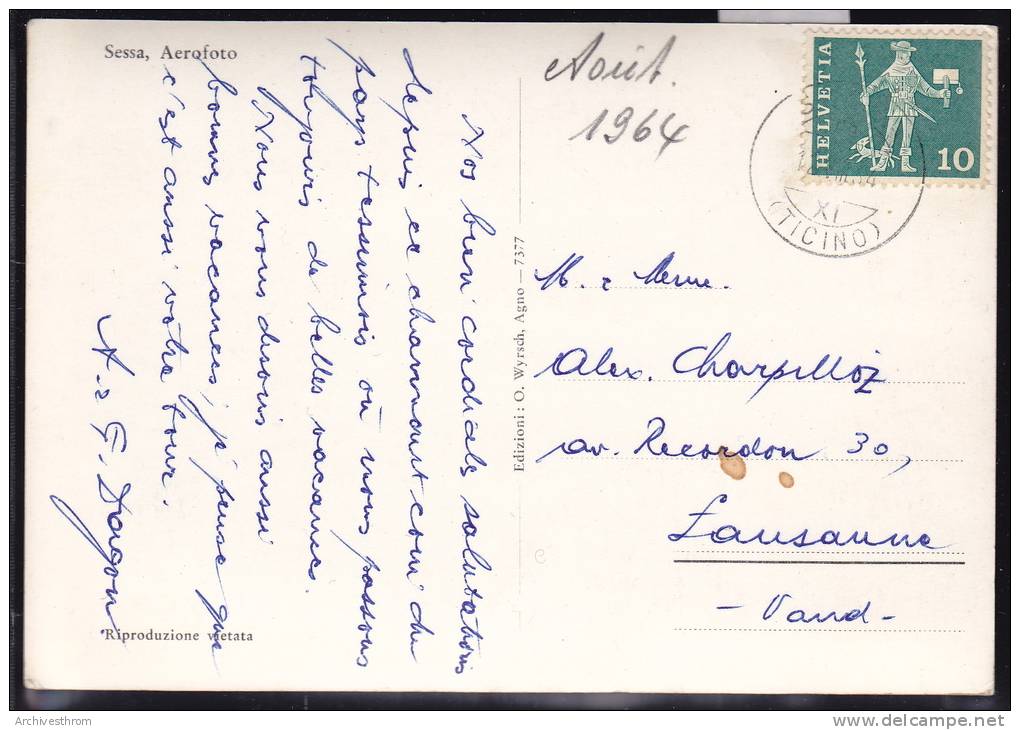 Sessa, Aerofoto
Août.
1964
HELVETIA
10
XI
(TICINO)
Nos bien cordiales salutations
depuis ce charmant coin du
pays tessinois où nous passons
toujours de belles vacances.
Nous vous disons aussi
bonnes vacances, je pense que
c'est aussi votre tour.
A. & F. Dagon.
Riproduzione vietata
Edizioni: O. Wyrsch, Agno — 7377
M. & Mme.
Alex. Charpilloz
av. Recordon 30,
Lausanne
- Vaud -
Archivesthrom
http://www.delcampe.net